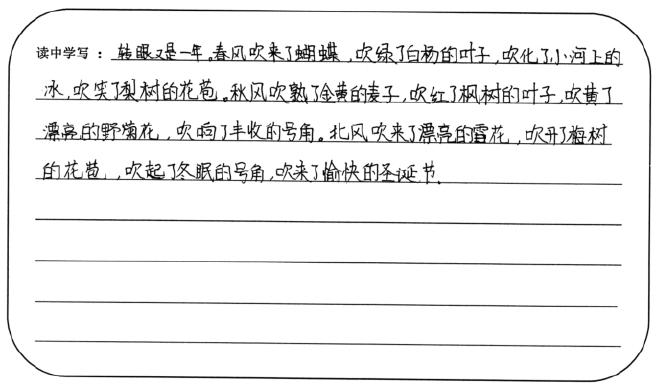 读中学写：转眼又是一年。春风吹来了蝴蝶，吹绿了白杨的叶子，吹化了小河上的
冰，吹笑了梨树的花苞。秋风吹熟了金黄的麦子，吹红了枫树的叶子，吹黄了
漂亮的野菊花，吹响了丰收的号角。北风吹来了漂亮的雪花，吹开了梅树
的花苞，吹起了冬眠的号角，吹来了愉快的圣诞节。